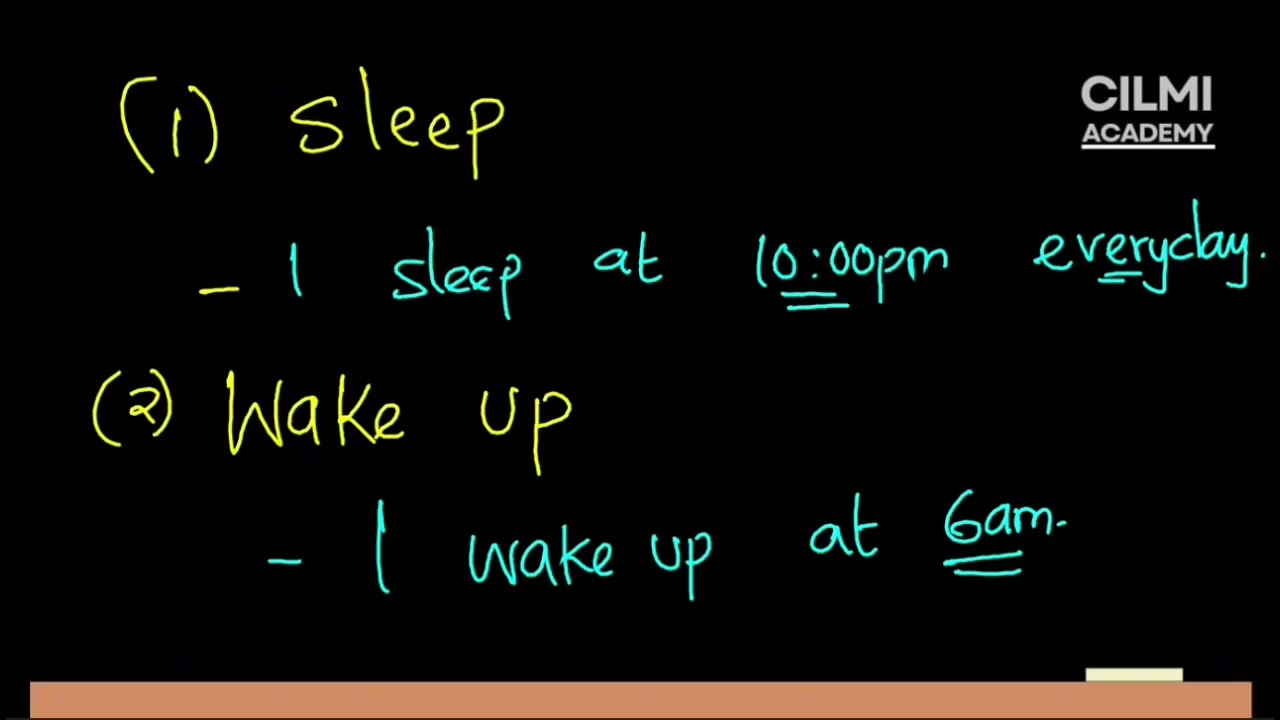 (1) sleep
CILMI
ACADEMY
- I sleep at 10:00pm everyday.
(2) Wake up
- I wake up at 6am.